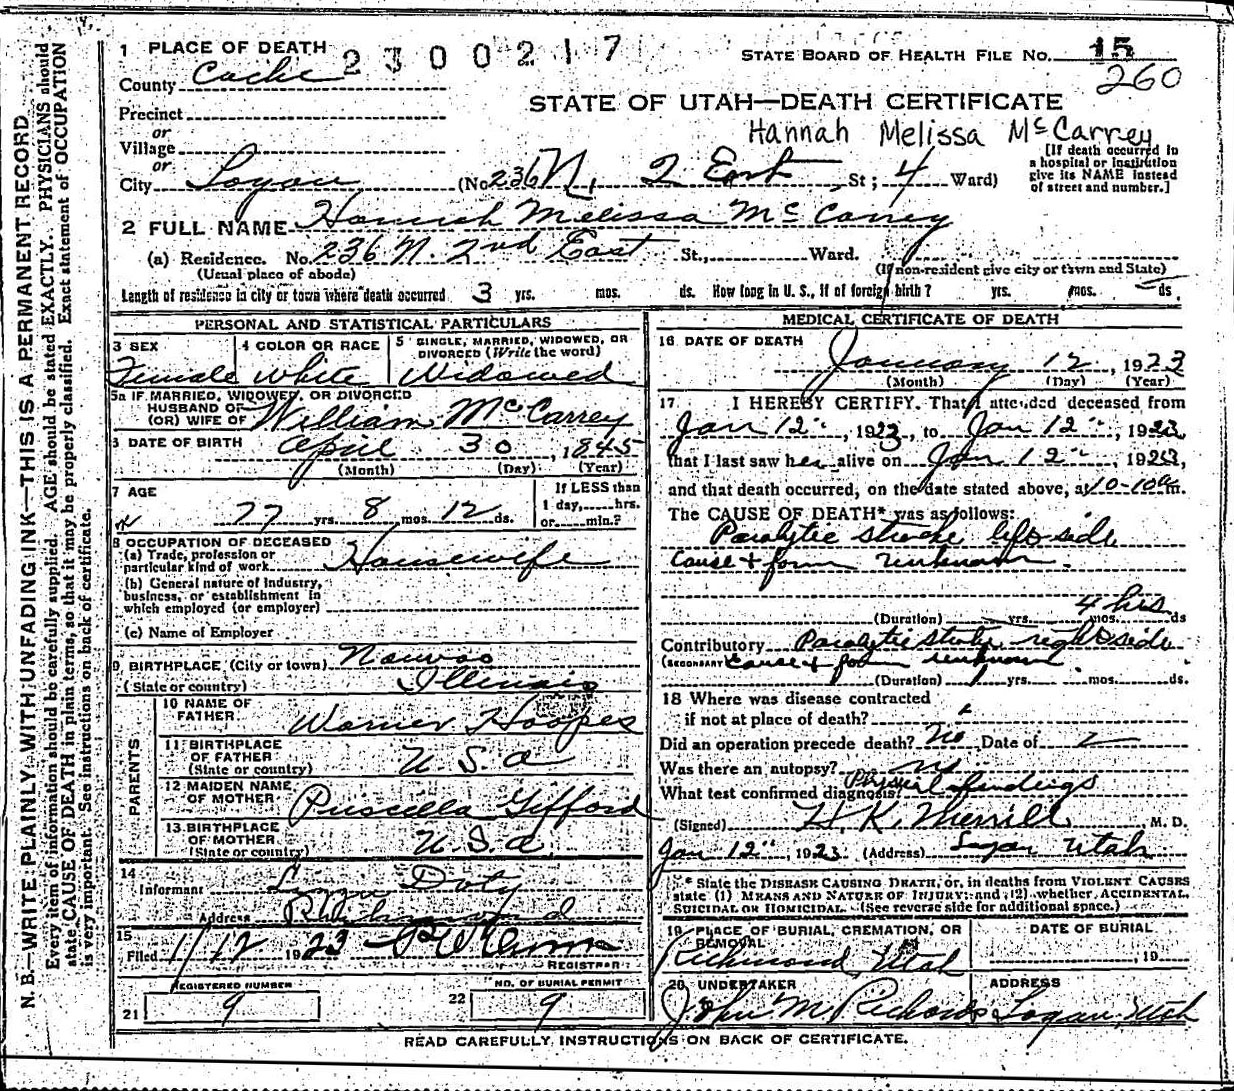 N. B.—WRITE PLAINLY, WITH UNFADING INK—THIS IS A PERMANENT RECORD
Every item of information should be carefully supplied. AGE should be stated EXACTLY. PHYSICIANS should
state CAUSE OF DEATH in plain terms, so that it may be properly classified. Exact statement of OCCUPATION
is very important. See instructions on back of certificate.
1 PLACE OF DEATH 2300217
STATE BOARD OF HEALTH FILE NO. 15
260
County Cache
STATE OF UTAH—DEATH CERTIFICATE
Precinct
Hannah Melissa McCarrey
or
Village
or
City Logan (No 236 N. 2 East St; 4 Ward)
[If death occurred in
a hospital or institution
give its NAME instead
of street and number.]
2 FULL NAME Hannah Melissa McCarrey
(a) Residence. No. 236 N. 2nd East St., Ward.
(Usual place of abode) (If non-resident give city or town and State)
Length of residence in city or town where death occurred 3 yrs. mos. ds. How long in U. S., if of foreign birth? yrs. mos. ds.
PERSONAL AND STATISTICAL PARTICULARS
3 SEX Female
4 COLOR OR RACE White
5 SINGLE, MARRIED, WIDOWED, OR
DIVORCED (Write the word)
Widowed
5a IF MARRIED, WIDOWED, OR DIVORCED
HUSBAND OF
(OR) WIFE OF William McCarrey
6 DATE OF BIRTH April 30, 1845
(Month) (Day) (Year)
7 AGE
77 yrs. 8 mos. 12 ds.
If LESS than
1 day, hrs.
or min.?
8 OCCUPATION OF DECEASED
(a) Trade, profession or
particular kind of work Housewife
(b) General nature of industry,
business, or establishment in
which employed (or employer)
(c) Name of Employer
9 BIRTHPLACE (City or town) Nauvoo
(State or country) Illinois
PARENTS
10 NAME OF
FATHER Warner Hoopes
11 BIRTHPLACE
OF FATHER
(State or country) U.S.a
12 MAIDEN NAME
OF MOTHER Priscilla Gifford
13 BIRTHPLACE
OF MOTHER
(State or country) U.S.a.
14
Informant Doty
Address Richmond
15
Filed 1/12 1923
REGISTRAR
REGISTERED NUMBER
21 9
NO. OF BURIAL PERMIT
22 9
MEDICAL CERTIFICATE OF DEATH
16 DATE OF DEATH
January 12, 1923
(Month) (Day) (Year)
17 I HEREBY CERTIFY, That I attended deceased from
Jan 12", 1923, to Jan 12", 1923,
that I last saw her alive on Jan 12", 1923,
and that death occurred, on the date stated above, at 10-10 a m.
The CAUSE OF DEATH* was as follows:
Paralytic stroke left side
cause & form unknown.
4 hrs
(Duration) yrs. mos. ds
Contributory Paralytic stroke right side
(SECONDARY) cause & form unknown.
(Duration) 1 yrs. mos. ds.
18 Where was disease contracted
if not at place of death?
Did an operation precede death? No Date of
Was there an autopsy? no
What test confirmed diagnosis? Physical findings
(Signed) H. K. Merrill, M. D.
Jan 12", 1923 (Address) Logan Utah
* State the DISEASE CAUSING DEATH, or, in deaths from VIOLENT CAUSES
state (1) MEANS AND NATURE OF INJURY; and (2), whether, ACCIDENTAL,
SUICIDAL OR HOMICIDAL. (See reverse side for additional space.)
19 PLACE OF BURIAL, CREMATION, OR
REMOVAL
Richmond, Utah
DATE OF BURIAL
19
20 UNDERTAKER
John M Richards
ADDRESS
Logan, Utah
READ CAREFULLY, INSTRUCTIONS ON BACK OF CERTIFICATE.